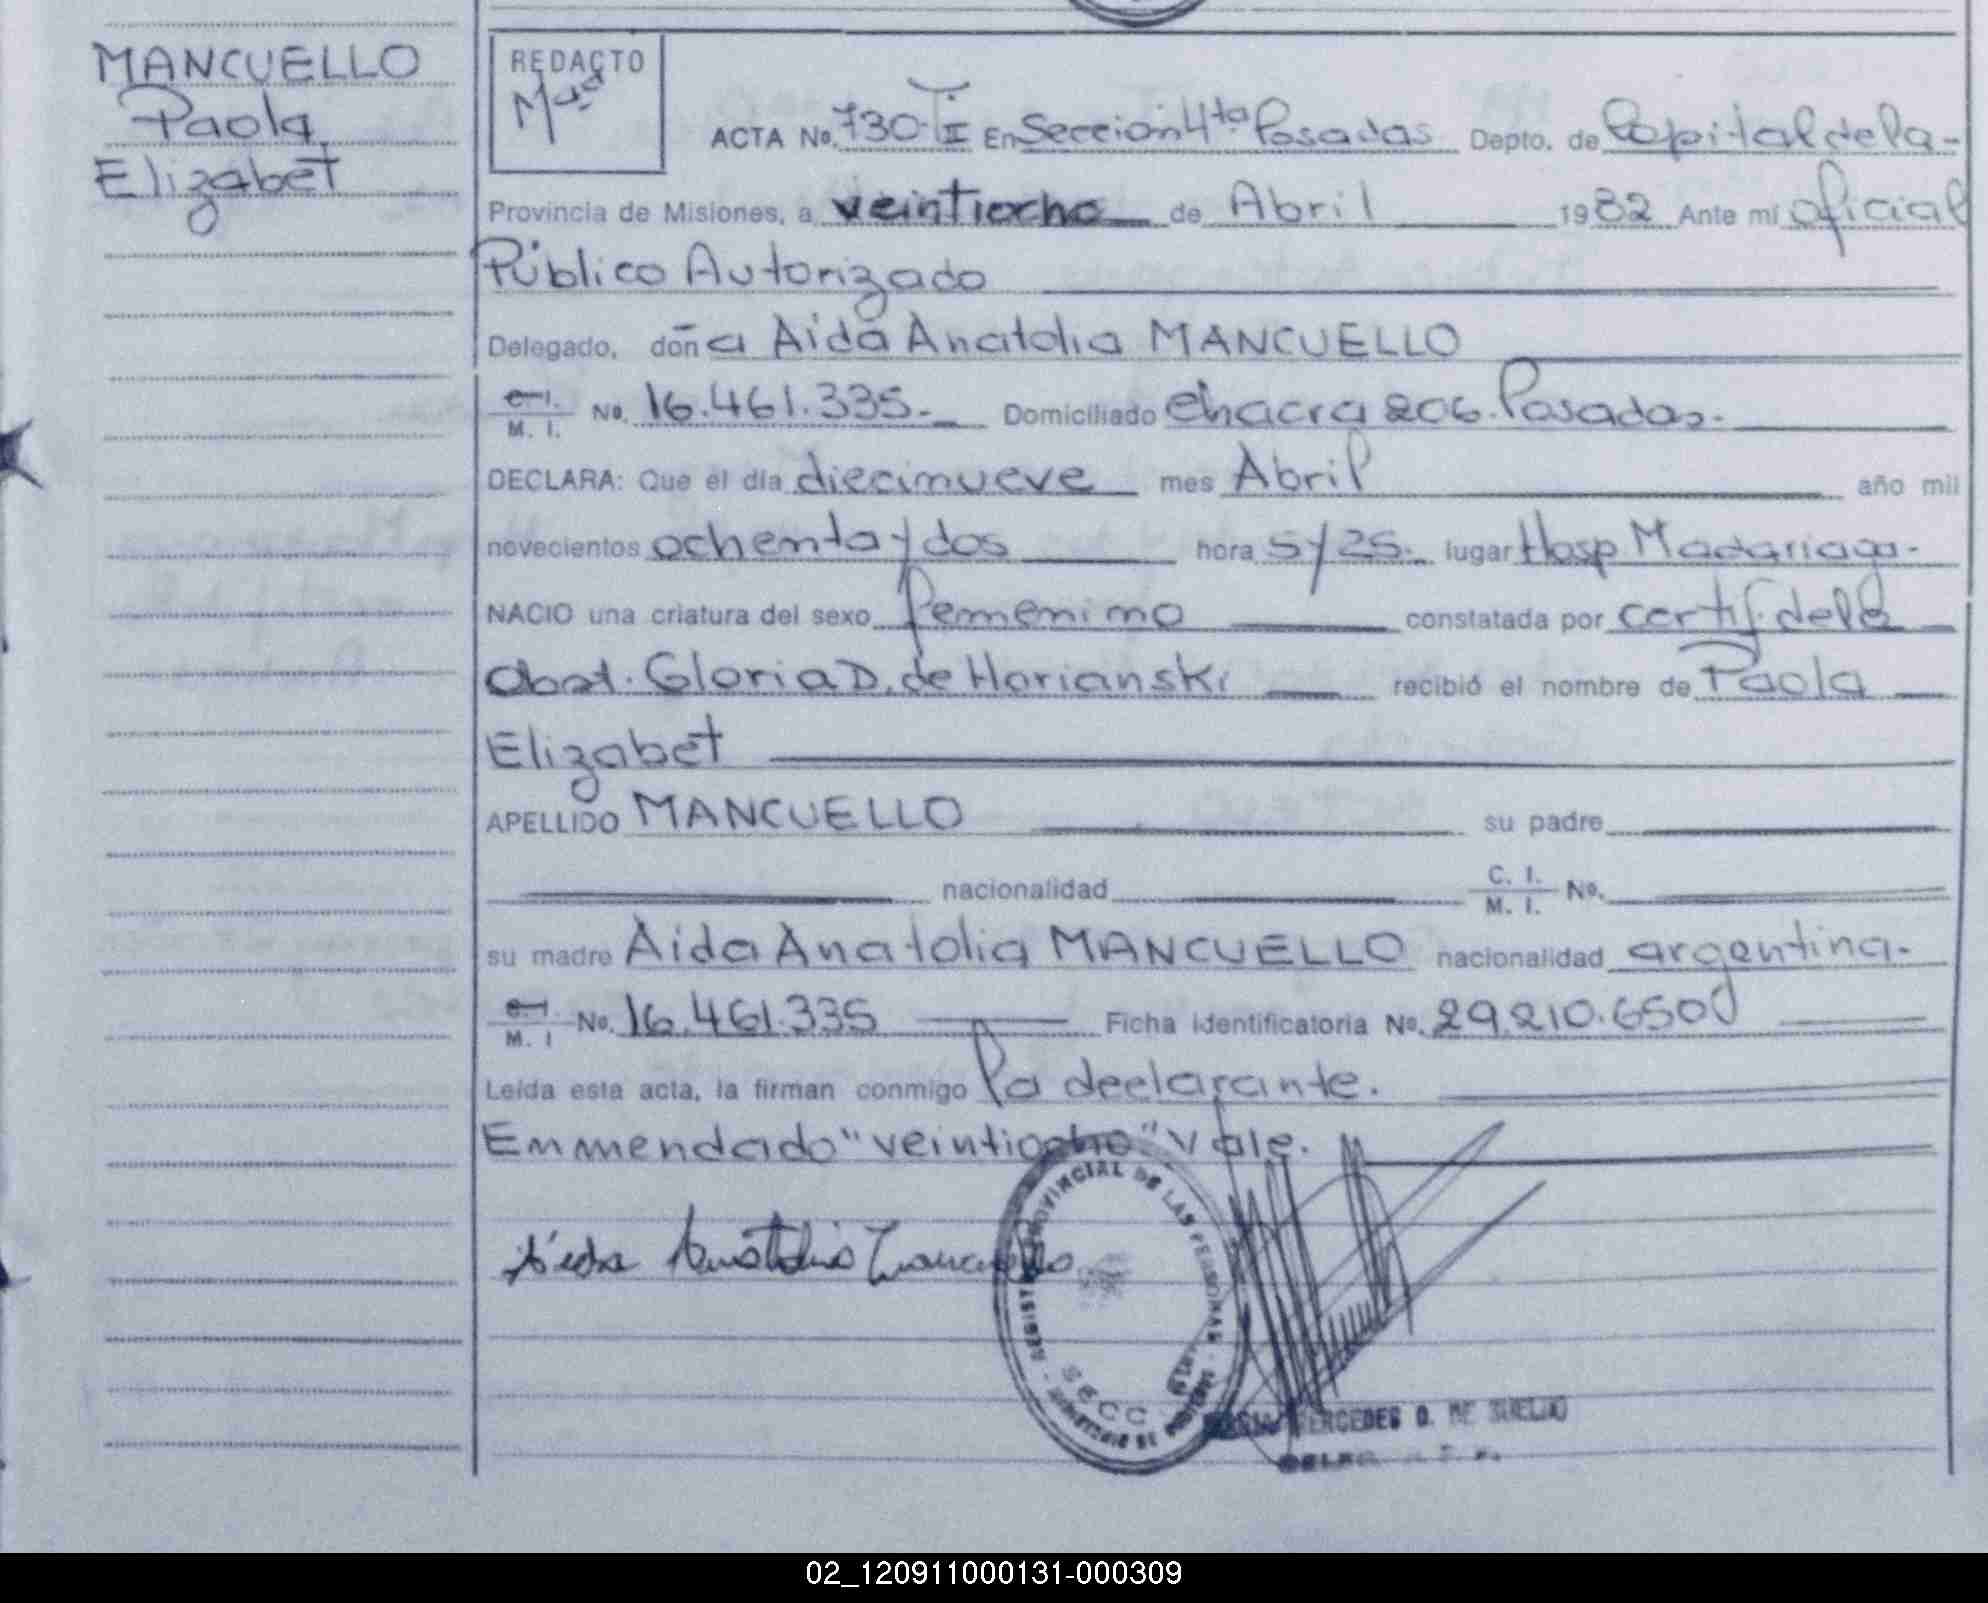 MANCUELLO
Paola
Elizabet
REDACTO
ACTA No. 730-TI En Sección 4ta Posadas Depto. de Capital de la-
Provincia de Misiones, a veintiocho de Abril 1982 Ante mí oficial
Público Autorizado
Delegado, doña Aida Anatolia MANCUELLO
C. I. / M. I. No. 16.461.335.- Domiciliado Chacra 206. Posadas.
DECLARA: Que el día diecinueve mes Abril año mil
novecientos ochenta y dos hora 5 y 25. lugar Hosp Madariaga.
NACIO una criatura del sexo femenino constatada por certif. de la
Obst. Gloria D. de Horianski recibió el nombre de Paola
Elizabet
APELLIDO MANCUELLO su padre
nacionalidad C. I. / M. I. No.
su madre Aida Anatolia MANCUELLO nacionalidad argentina.
C. I. / M. I No. 16.461.335 Ficha identificatoria No. 29.210.650
Leída esta acta, la firman conmigo la declarante.
Enmendado "veintiocho" Vale.
Aida Anatolia Mancuello
REGISTRO PROVINCIAL DE LAS PERSONAS
SECC
MERCEDES D. DE
02_120911000131-000309